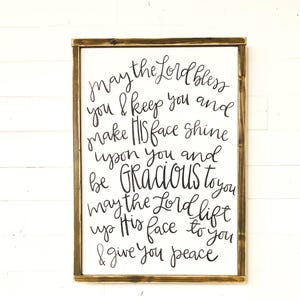 may the Lord bless
you & keep you and
make HIS face shine
upon you and
be GRACIOUS to you
may the Lord lift
up His face to you
& give you peace